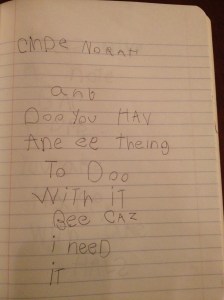 OMDE NORAH
anb
Doo You HAV
Ane ee theing
To Doo
WitH iT
Bee CAZ
i neeD
iT